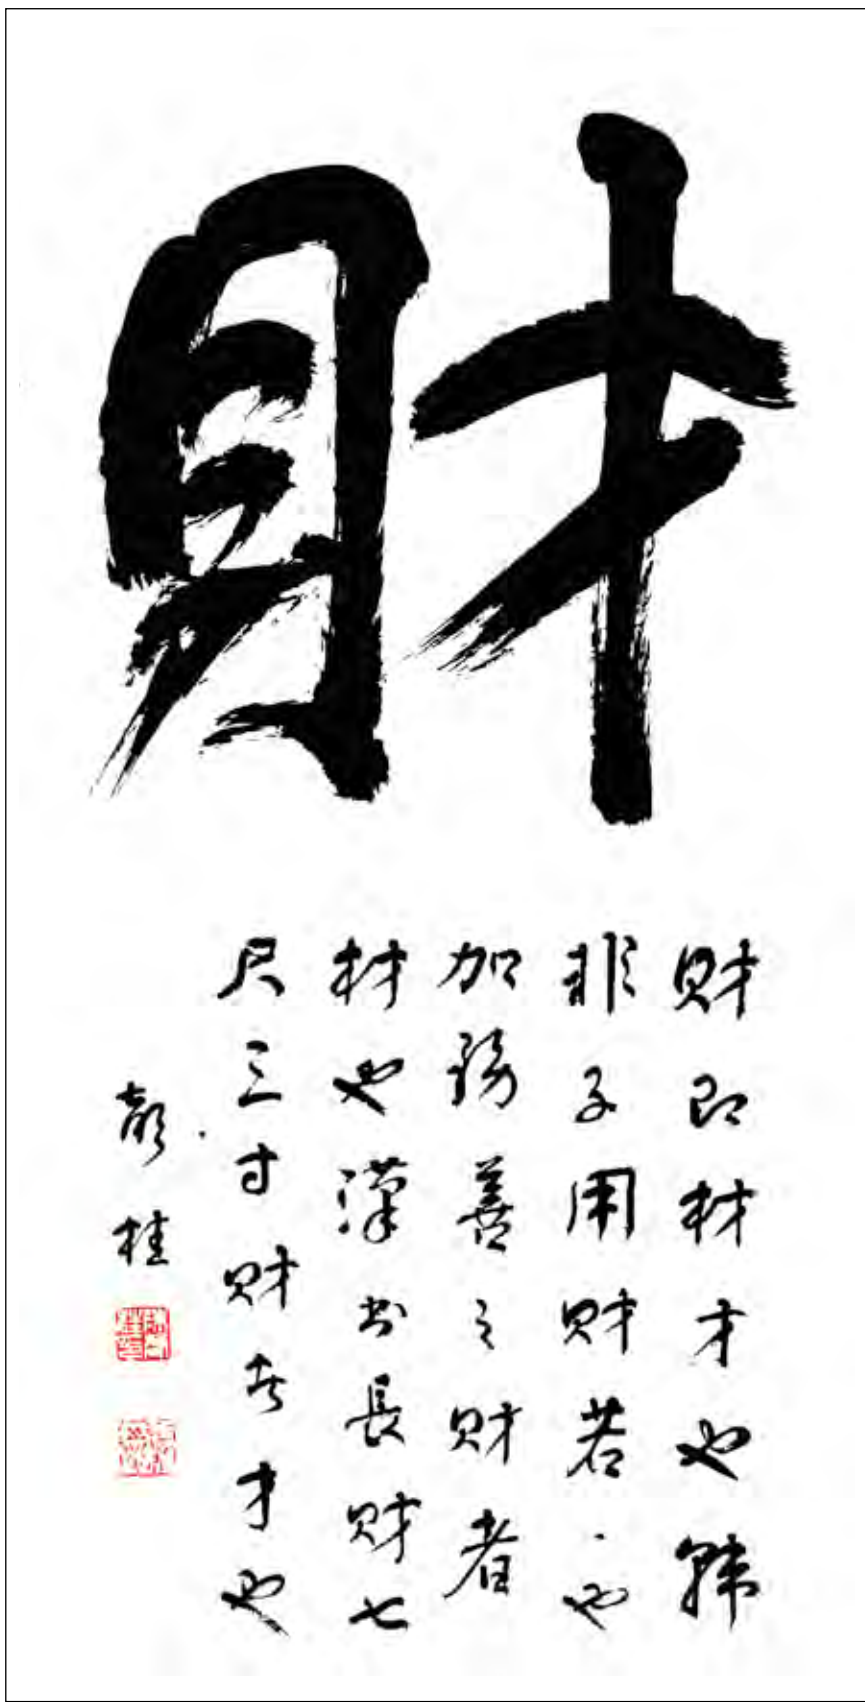 財
財即材才也韓
非子用財若、也
加務善之財者
材也漢書長財七
尺三寸財者才也
彭桂